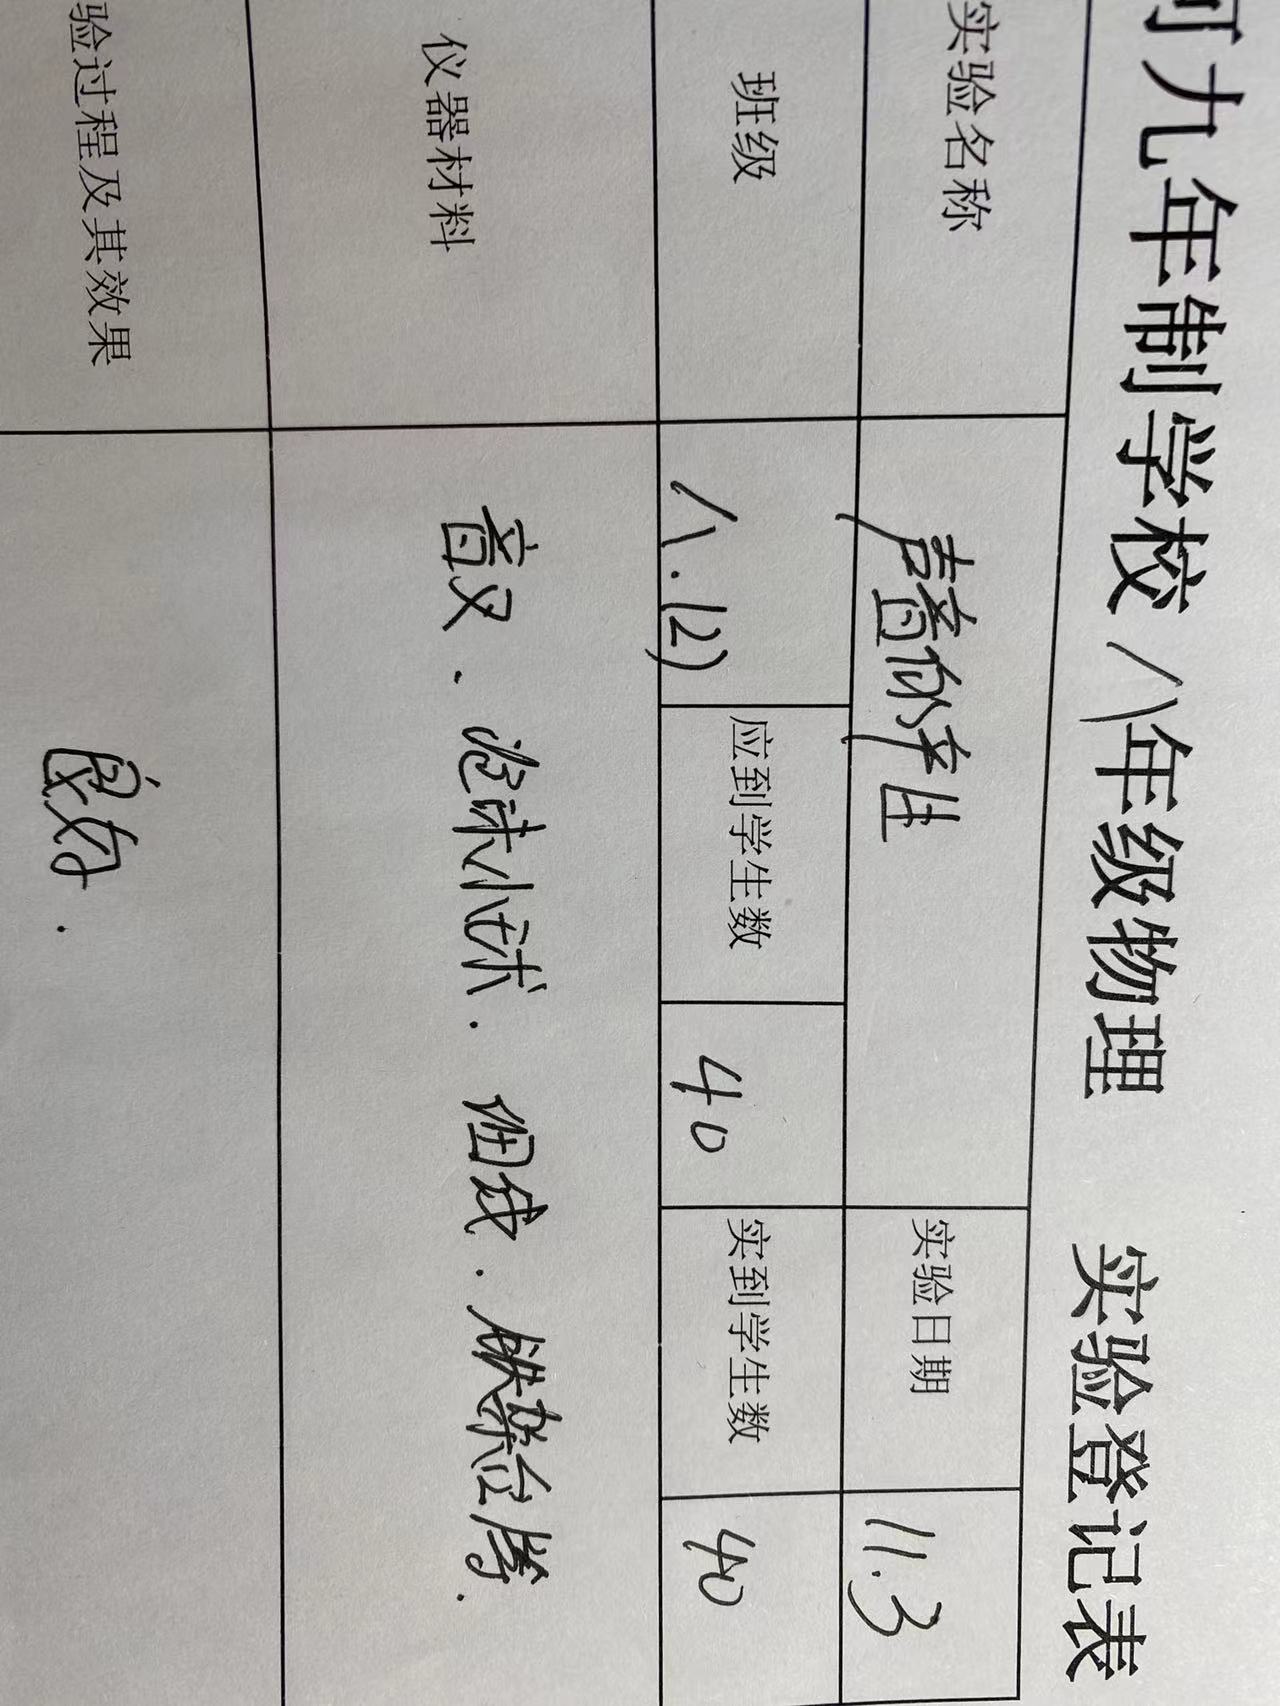 河九年制学校八年级物理 实验登记表
实验名称 声音的产生 实验日期 11.3
班级 八.(2) 应到学生数 40 实到学生数 40
仪器材料 音叉、泡沫小球、细线、铁架台等.
验过程及其效果 良好.